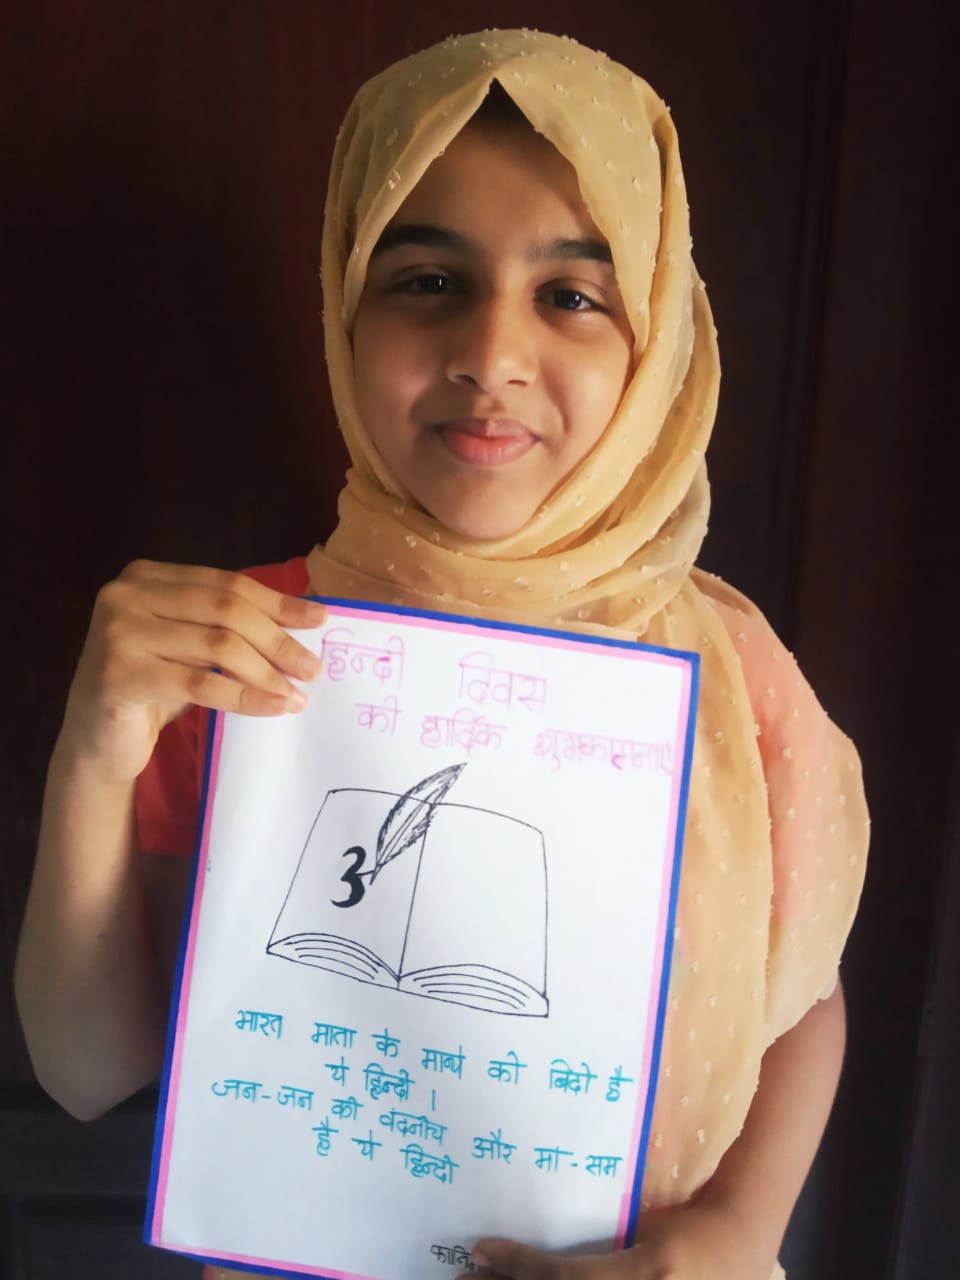 हिन्दी दिवस
की हार्दिक शुभकामनाएं
भारत माता के माथे की बिंदी है
ये हिन्दी ।
जन-जन की वंदनीय और मां-सम
है ये हिन्दी